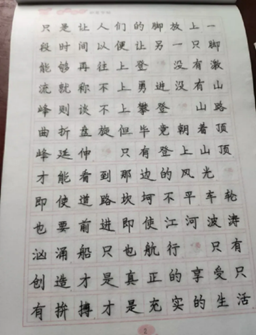 只是让人们的脚放上一
段时间以便让另一只脚
能够再往上登 没有激
流就称不上勇进没有山
峰则谈不上攀登 山路
曲折盘旋但毕竟朝着顶
峰延伸 只有登上山顶
才能看到那边的风光
即使道路坎坷不平车轮
也要前进即使江河波涛
汹涌船只也航行 只有
创造才是真正的享受只
有拚搏才是充实的生活